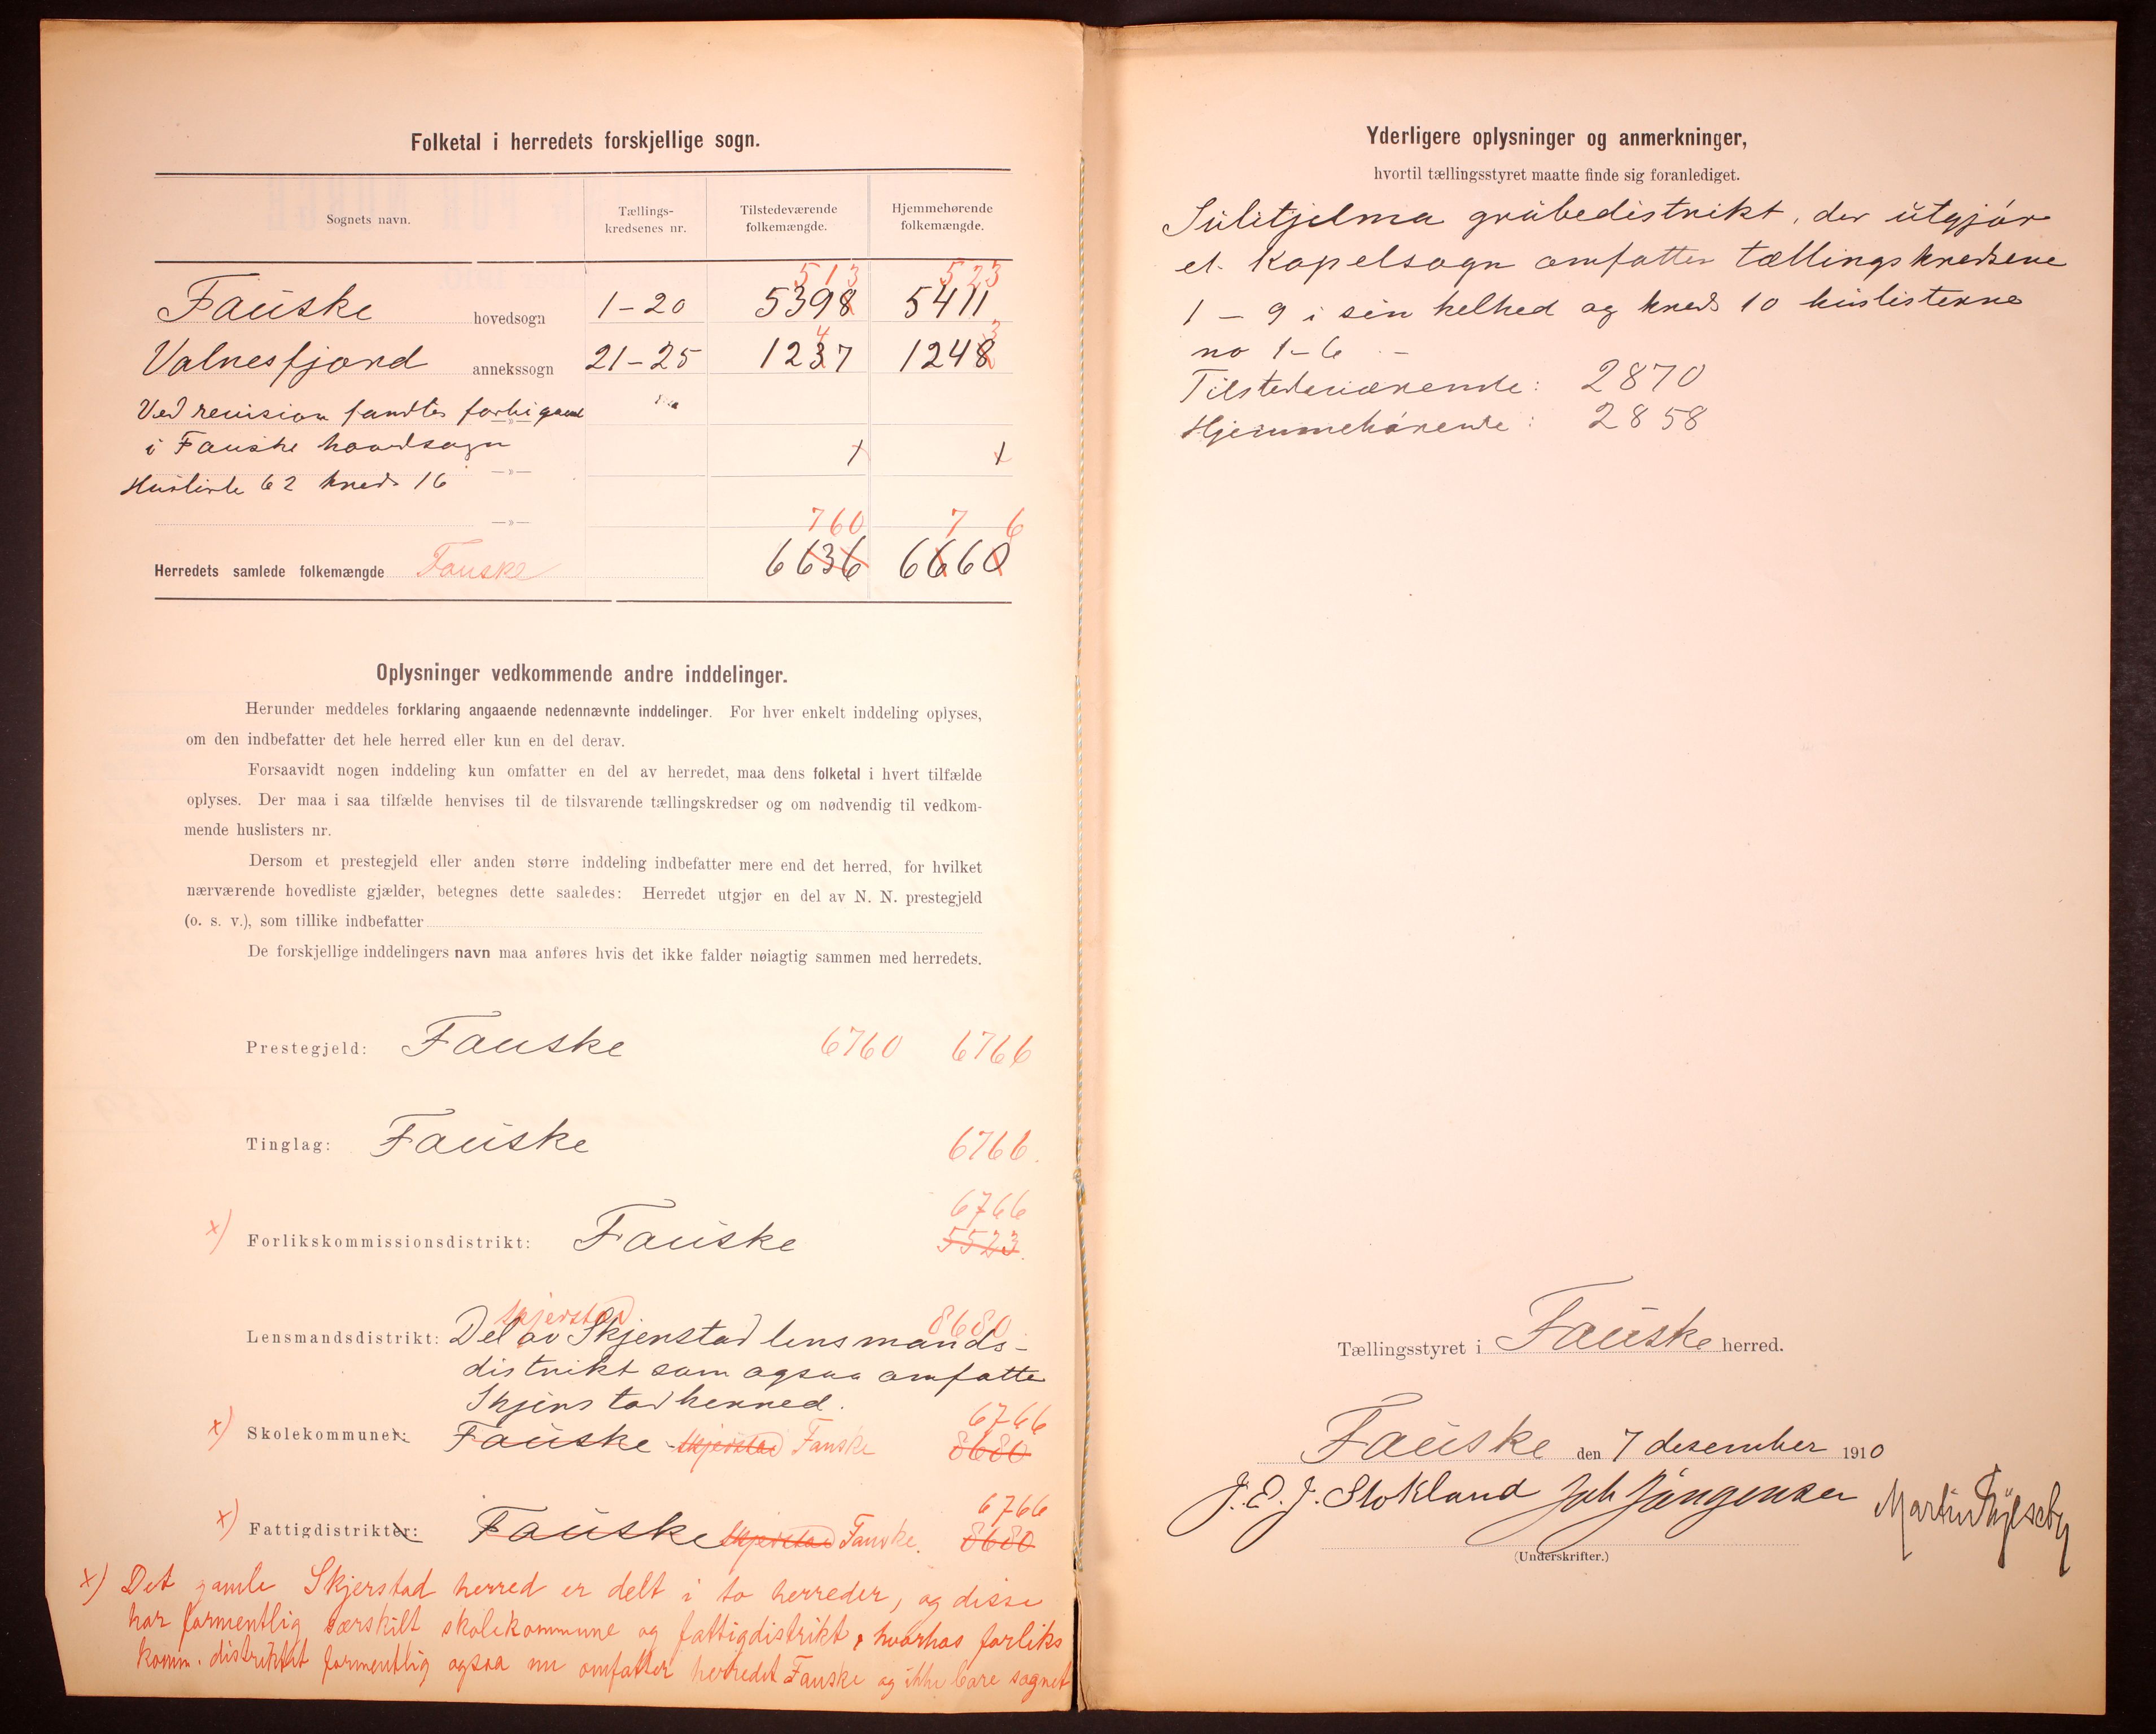 Folketal i herredets forskjellige sogn.
Sognets navn.
Tællings-
kredsenes nr.
Tilstedeværende
folkemængde.
Hjemmehørende
folkemængde.
513 523
Fauske hovedsogn 1-20 5398 5411
4 3
Valnesfjord annekssogn 21-25 1237 1248
Ved revision fandtes forbigaaed
—»—
i Fauske hovedsogn 1 1
Husliste 62 kreds 16 —»—
—»— 760 7 6
Herredets samlede folkemængde Fauske 6636 6660
Oplysninger vedkommende andre inddelinger.
Herunder meddeles forklaring angaaende nedennævnte inddelinger. For hver enkelt inddeling oplyses,
om den indbefatter det hele herred eller kun en del derav.
Forsaavidt nogen inddeling kun omfatter en del av herredet, maa dens folketal i hvert tilfælde
oplyses. Der maa i saa tilfælde henvises til de tilsvarende tællingskredser og om nødvendig til vedkom-
mende huslisters nr.
Dersom et prestegjeld eller anden større inddeling indbefatter mere end det herred, for hvilket
nærværende hovedliste gjælder, betegnes dette saaledes: Herredet utgjør en del av N. N. prestegjeld
(o. s. v.), som tillike indbefatter
De forskjellige inddelingers navn maa anføres hvis det ikke falder nøiagtig sammen med herredets.
Prestegjeld: Fauske 6760 6766
Tinglag: Fauske 6766.
6766
x) Forlikskommissionsdistrikt: Fauske 5523.
Skjerstad 8680
Lensmandsdistrikt: Del av Skjerstad lensmands-
distrikt som ogsaa omfatter
Skjerstad herred.
6766
x) Skolekommuner: Fauske Skjerstad Fauske 8680
6766
x) Fattigdistrikter: Fauske Skjerstad Fauske. 8680
x) Det gamle Skjerstad herred er delt i to herreder, og disse
har formentlig særskilt skolekommune og fattigdistrikt, hvorhos forliks
komm. distriktet formentlig ogsaa nu omfatter herredet Fauske og ikke bare sognet
Yderligere oplysninger og anmerkninger,
hvortil tællingsstyret maatte finde sig foranlediget.
Sulitjelma grubedistrikt, der utgjør
et kapelsogn omfatter tællingskredsene
1 – 9 i sin helhed og kreds 10 huslisterne
no 1-6 –
Tilstedeværende: 2870
Hjemmehørende: 2858
Tællingsstyret i Fauske herred.
Fauske den 7 desember 1910
J. E. J. Stokland Joh Jørgensen Martin
(Underskrifter.)